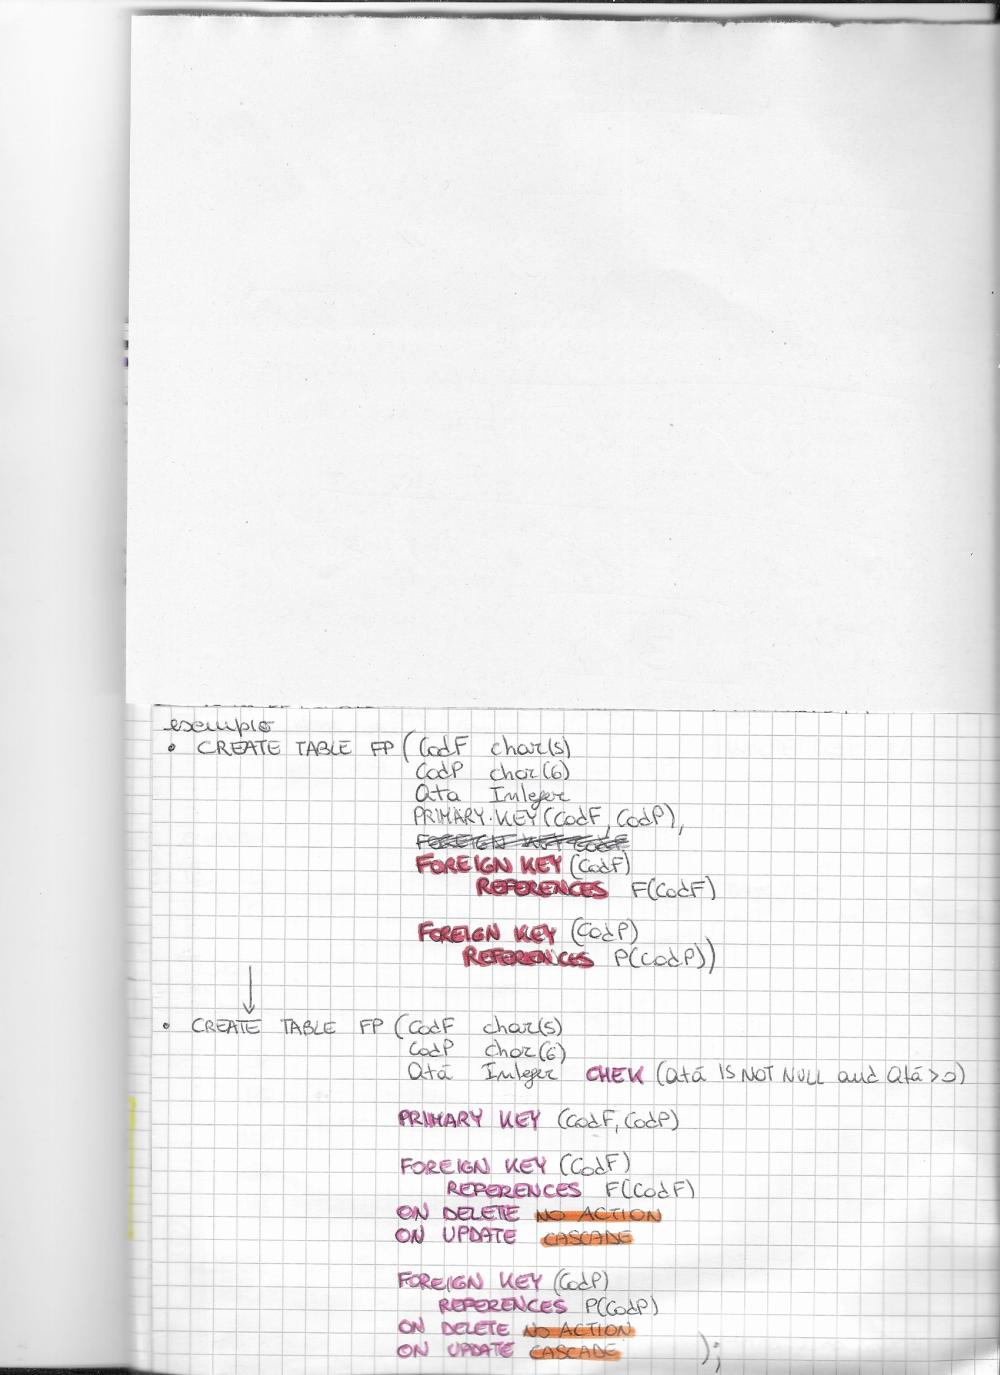 esempio
• CREATE TABLE FP (CodF char(5)
CodP char(6)
Qta Integer
PRIMARY KEY (CodF, CodP),
FOREIGN KEY (CodF)
REFERENCES F(CodF)
FOREIGN KEY (CodP)
REFERENCES P(CodP))
• CREATE TABLE FP (CodF char(5)
CodP char(6)
Qtà Integer CHEK (Qtà IS NOT NULL and Qtà > 0)
PRIMARY KEY (CodF, CodP)
FOREIGN KEY (CodF)
REFERENCES F(CodF)
ON DELETE NO ACTION
ON UPDATE CASCADE
FOREIGN KEY (CodP)
REFERENCES P(CodP)
ON DELETE NO ACTION
ON UPDATE CASCADE );